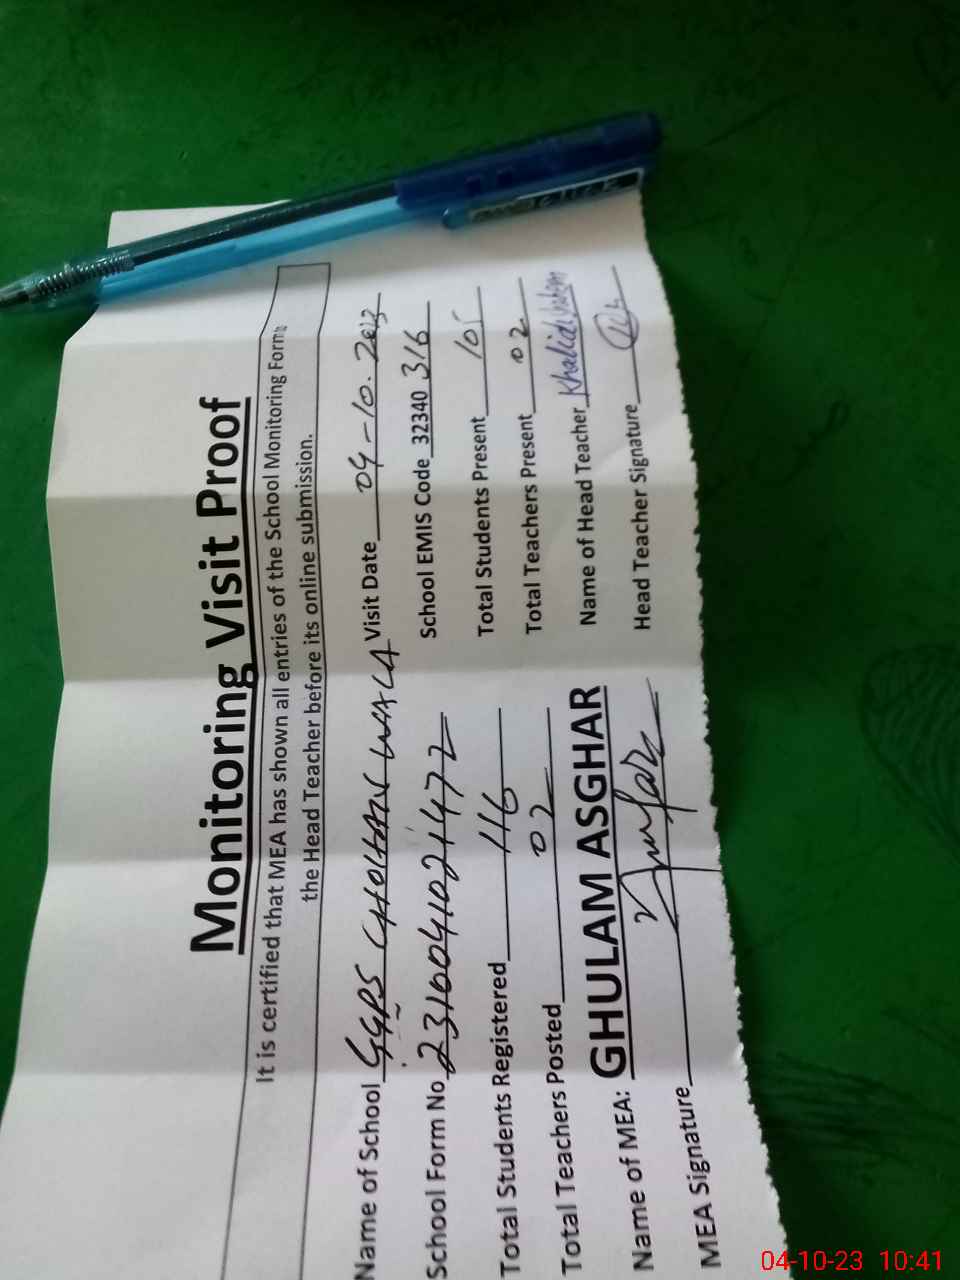 Monitoring Visit Proof
It is certified that MEA has shown all entries of the School Monitoring Forms
the Head Teacher before its online submission.
Name of School GGPS CHOHAN WALA Visit Date 04-10-2023
School Form No 2316041021472 School EMIS Code 32340 316
Total Students Registered 116 Total Students Present 105
Total Teachers Posted 02 Total Teachers Present 02
Name of MEA: GHULAM ASGHAR Name of Head Teacher Khalida
MEA Signature Head Teacher Signature
04-10-23 10:41